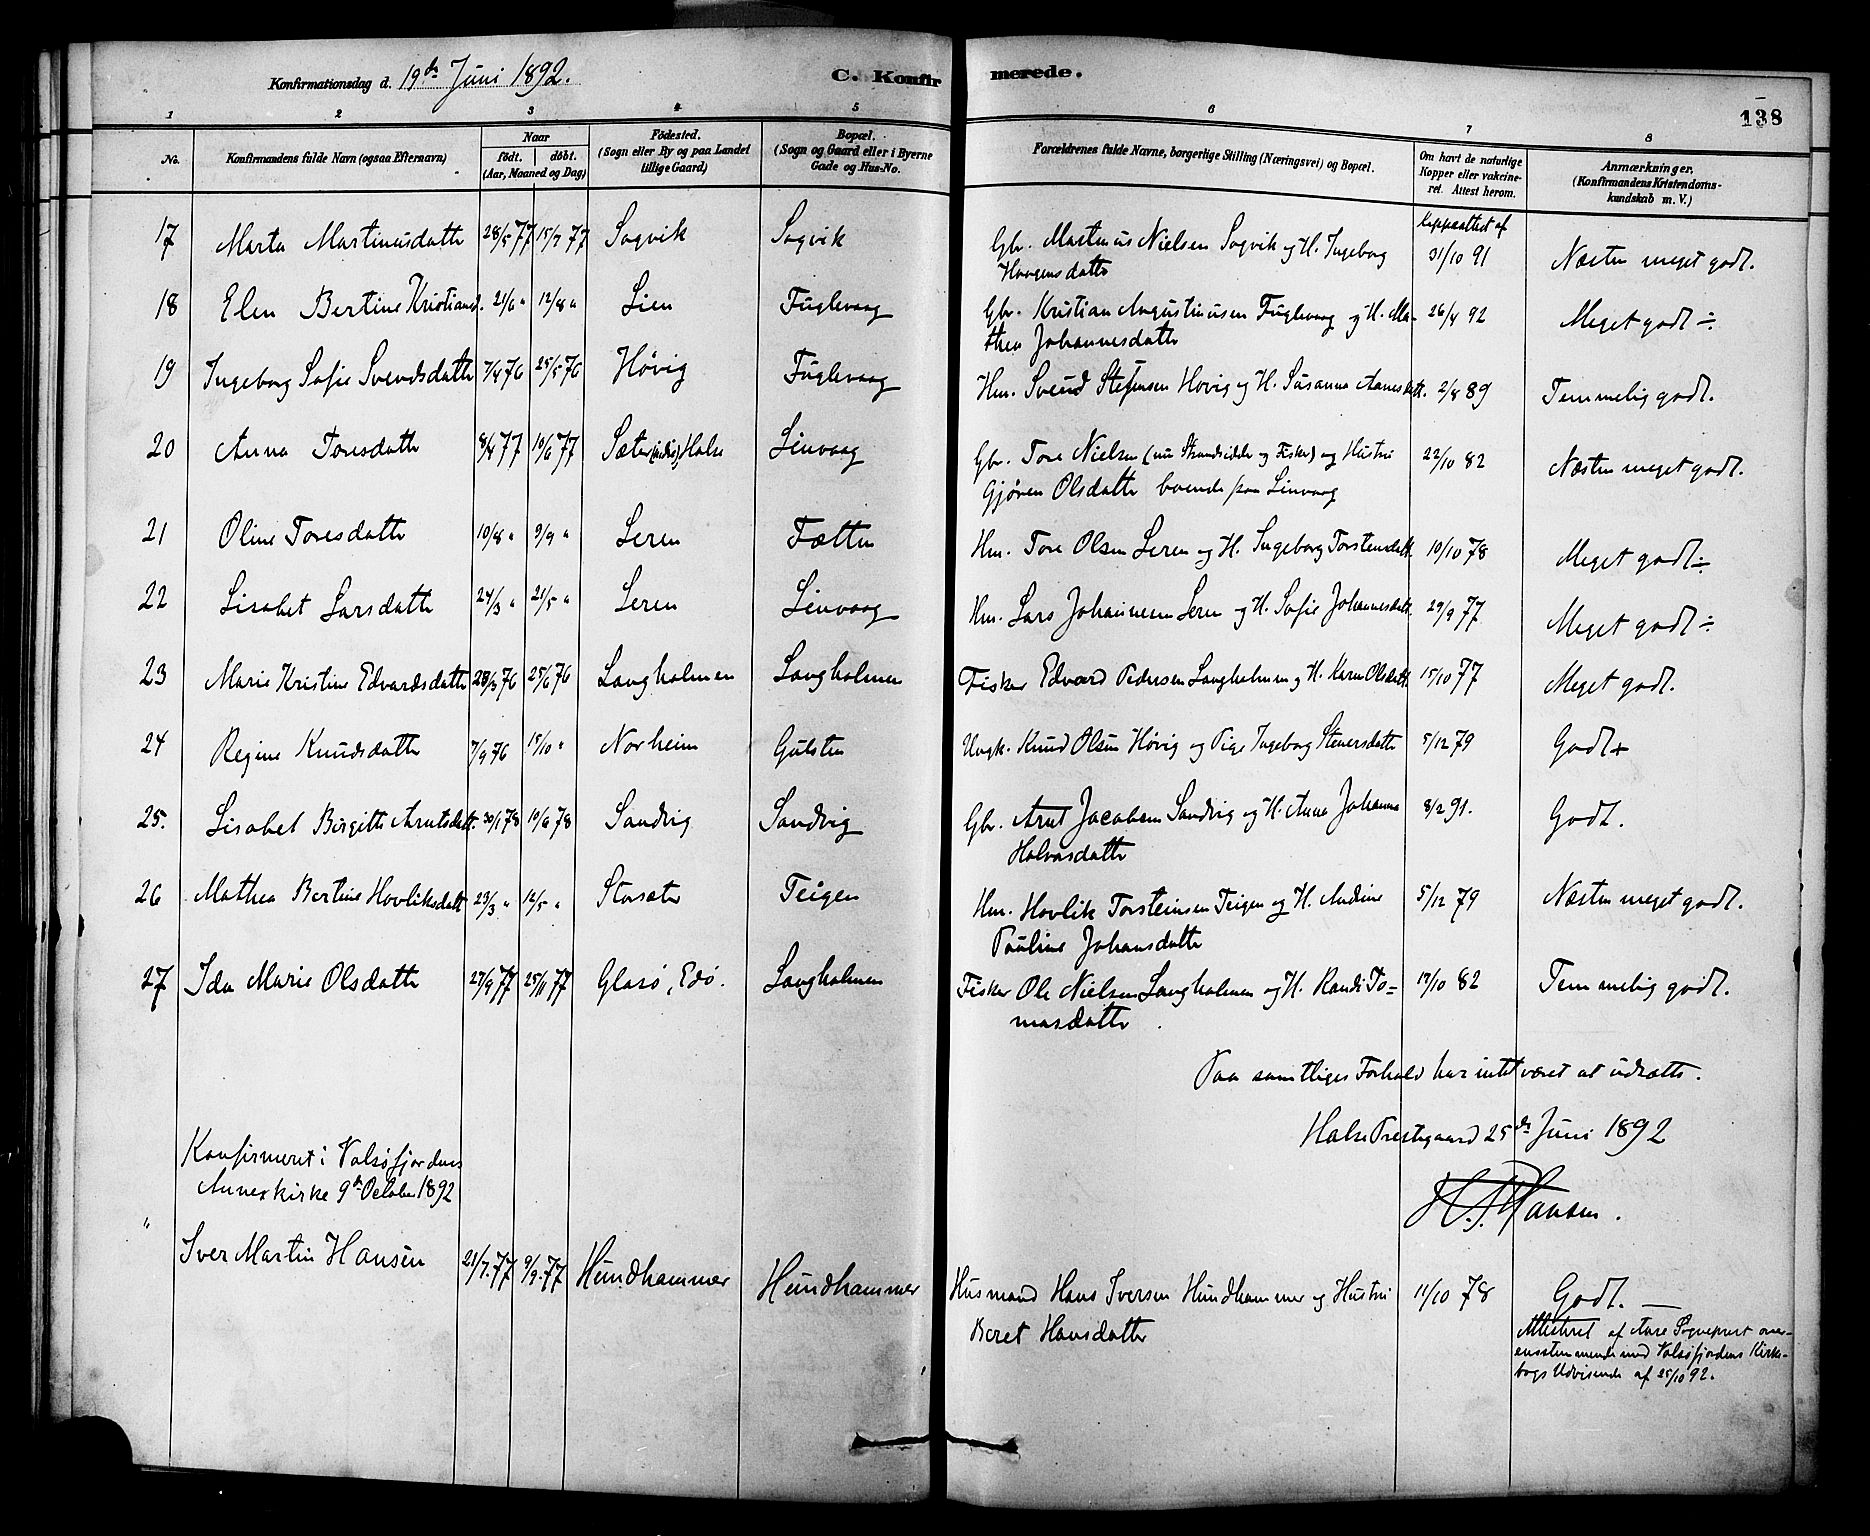 Konfirmationsdag d. 19de Juni 1892.
C. Konfir
merede.
138
1 2 3 4 5 6 7 8
No.
Konfirmandens fulde Navn (ogsaa Efternavn)
Naar
født. døbt.
(Aar, Maaned og Dag)
Fødested.
(Sogn eller By og paa Landet
tillige Gaard)
Bopæl.
(Sogn og Gaard eller i Byerne
Gade og Hus-No.
Forældrenes fulde Navne, borgerlige Stilling (Næringsvei) og Bopæl.
Om havt de naturlige
Kopper eller vakcine-
ret. Attest herom.
Anmærkninger,
(Konfirmandens Kristendoms-
kundskab m. V.)
17 Marta Martinusdatter 28/5 77 15/7 77 Sagvik Sagvik Gbr. Martinus Nielsen Sagvik og H. Ingeborg Koppeattest af 31/10 91 Næsten meget godt.
Haagensdatter
18 Elen Bertine Kristiansd. 21/6 " 12/8 " Lien Fuglevaag Gbr. Kristian Augustinusen Fuglevaag og H. Ma- 26/4 92 Meget godt ÷
thea Johannesdatter
19 Ingeborg Sofie Svendsdatter 7/4 76 25/5 76 Høvig Fuglevaag Hm. Svend Steffensen Høvig og H. Susanna Aanesdatt. 2/8 89 Temmelig godt.
20 Anna Toresdatter 8/4 77 10/6 77 Sæter Halse Linvaag Gbr. Tore Nielsen (nu Strandsidder og Fisker) og Hustru 22/10 82 Næsten meget godt.
Gjøren Olsdatter boende paa Linvaag
21 Oline Toresdatter 10/8 " 9/9 " Leren Fætten Hm. Tore Olsen Leren og H. Ingeborg Torstensdatt. 10/10 78 Meget godt ÷
22 Lisabet Larsdatter 24/3 " 21/5 " Leren Linvaag Hm. Lars Johannesen Leren og H. Sofie Johannesdatt. 29/9 77 Meget godt ÷
23 Marie Kristine Edvardsdatter 28/3 76 25/6 76 Langholmen Langholmen Fisker Edvard Pedersen Langholmen og H. Karen Olsdatt. 15/10 77 Meget godt.
24 Regine Knudsdatter 7/9 76 15/10 " Norheim Gulsten Ungk. Knud Olsen Høvig og Pige Ingeborg Stenersdatter 5/12 79 Godt +
25. Lisabet Birgitte Arntsdatt. 30/1 78 10/6 78 Sandvig Sandvig Gbr. Arnt Jacobsen Sandvig og H. Anne Johanna 8/2 91. Godt.
Halvorsdatter
26 Mathea Bertine Hovliksdatt 23/3 " 12/5 " Storsæter Teigen Hm. Hovlik Torsteinsen Teigen og H. Andrine 5/12 79 Næsten meget godt.
Pauline Johansdatter
27 Ida Marie Olsdatter 27/9 77 25/11 77 Glasø, Edø. Langholmen Fisker Ole Nielsen Langholmen og H. Randi To= 17/10 82 Temmelig godt.
masdatter.
Paa samtliges Forhold har intet været at udsætte.
Halse Prestegaard 25de Juni 1892
Hansen.
Konfirmeret i Valsøfjordens
Annexkirke 9de October 1892
" Iver Martin Hansen 21/7. 77 9/9. 77 Hundhammer Hundhammer Husmand Hans Iversen Hundhammer og Hustru 11/10 78 Godt. —
Beret Hansdatter
Attesteret af Aure Sogneprest over-
ensstemmende med Valsøfjordens Kirke-
bogs Udvisende af 25/10 92.